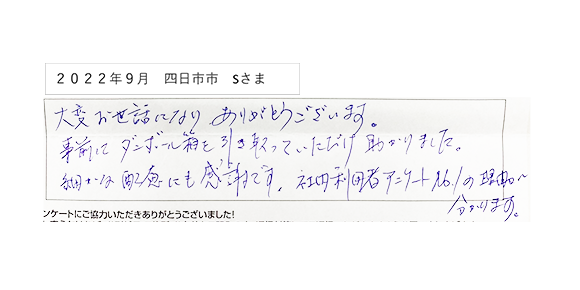 2022年9月 四日市市 Sさま
大変お世話になり ありがとうございます。
事前に ダンボール箱を引き取っていただけ 助かりました。
細かな配慮にも感謝です。社内利用者アンケートNo.1の理由が
分かります。
ンケートにご協力いただきありがとうございました!